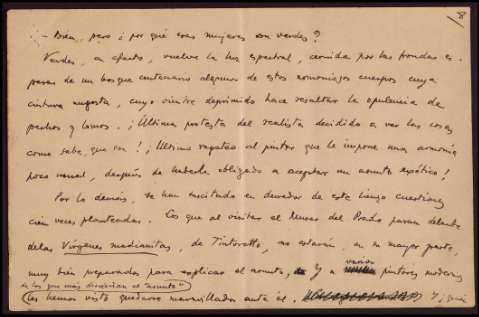 8
- Bien, pero ¿por qué esas mujeres son verdes?
Verdes, en efecto, vuelve la luz espectral, cernida por las frondas es-
pesas de un bosque centenario algunos de estos armoniosos cuerpos cuya
cintura angosta, cuyo vientre deprimido hace resaltar la opulencia de
pechos y lomos. ¡Ultima protesta del realista decidido a ver las cosas
como sabe que son! ¡Ultimo regateo al pintor que le impone una armonía
poco usual, después de haberle obligado a aceptar un asunto exótico!
Por lo demás, se han suscitado en derredor de este lienzo cuestiones
cien veces planteadas. Los que al visitar el Museo del Prado paran delante
de las Vírgenes madianitas, de Tintoretto, no estarán, en su mayor parte,
muy bien preparados para explicar el asunto. Y a varios pintores modernos
de los que más desdeñan el "asunto"
les hemos visto quedarse maravillados ante él. Y ¿qué